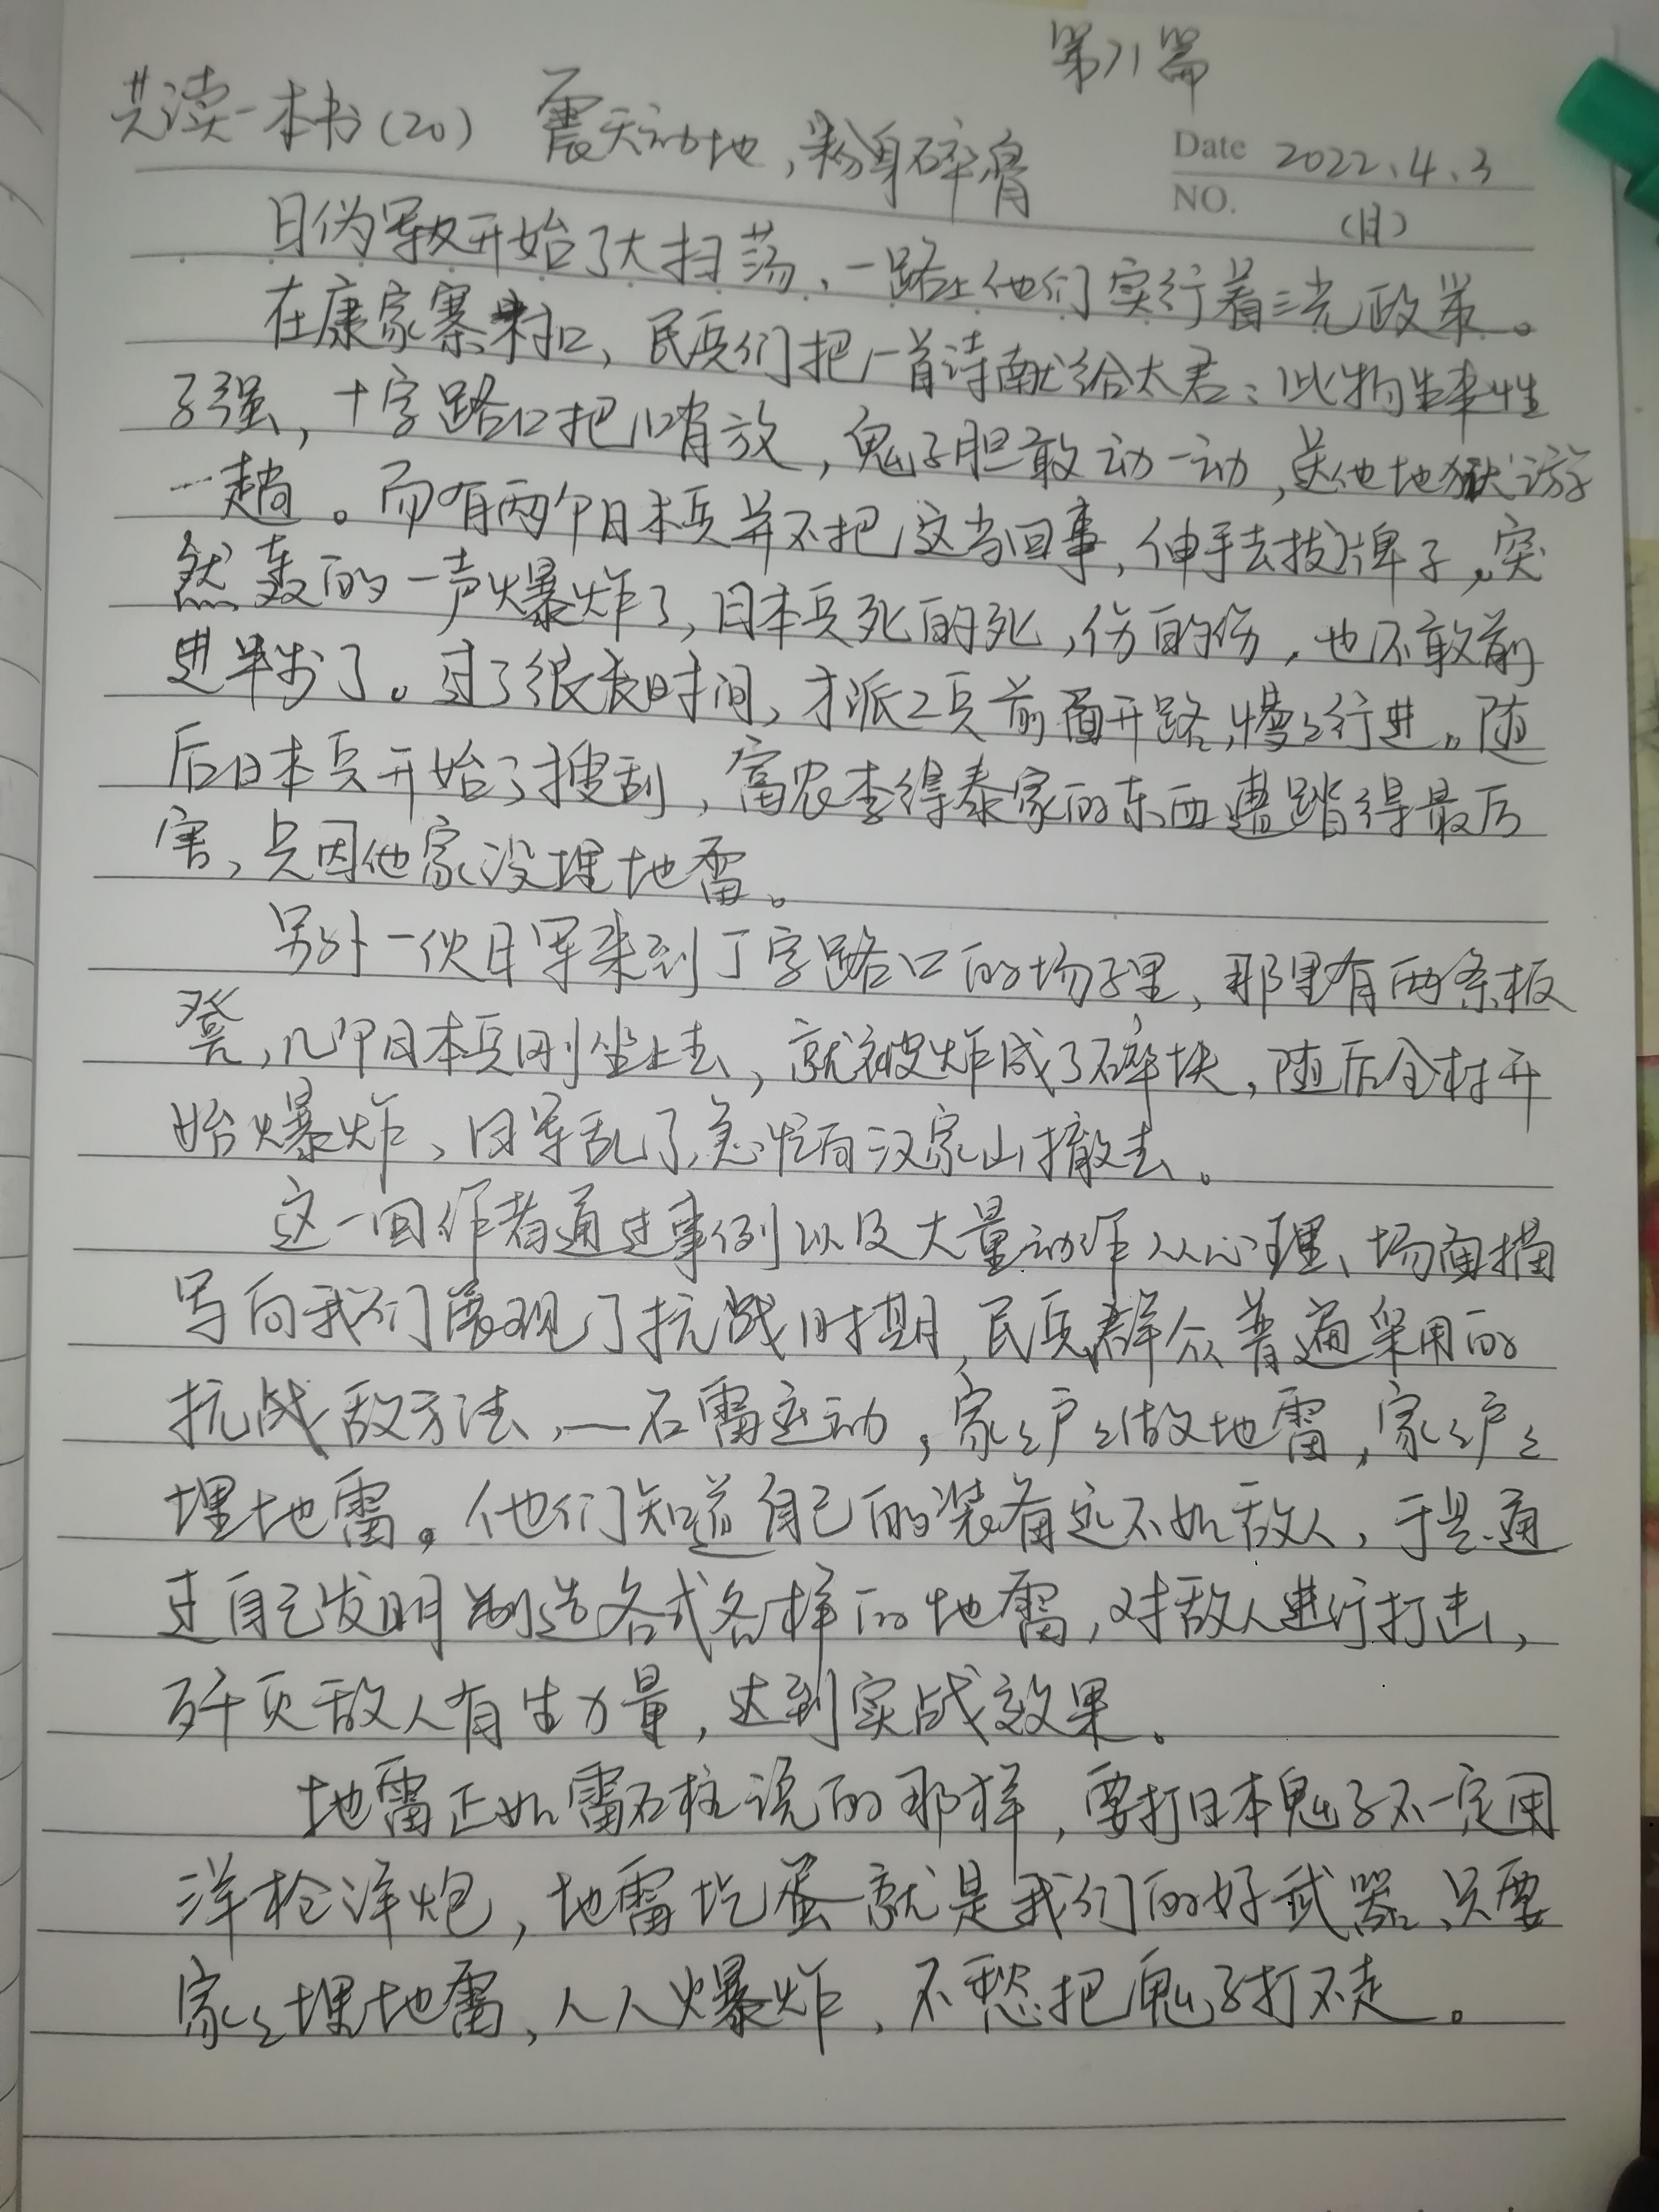 第71篇
共读一本书(20) 震天动地,粉身碎骨
Date 2022.4.3
NO. (日)
日伪军开始了大扫荡,一路上他们实行着三光政策。
在康家寨村口,民兵们把一首诗献给太君:此物生来性
子强,十字路口把哨放,鬼子胆敢动一动,送他地狱游
一趟。而有两个日本兵并不把这当回事,伸手去拔牌子,突
然轰的一声爆炸了,日本兵死的死,伤的伤,也不敢前
进半步了。过了很长时间,才派工兵前面开路,慢慢行进。随
后日本兵开始了搜刮,富农李得泰家的东西遭踏得最历
害,只因他家没埋地雷。
另外一伙日军来到丁字路口的场子里,那里有两条板
凳,几个日本兵刚坐上去,就被炸成了碎块,随后全村开
始爆炸,日军乱了,急忙向汉家山撤去。
这一回作者通过事例以及大量动作、心理、场面描
写向我们展现了抗战时期,民兵群众普遍采用的
抗战敌方法,—石雷运动,家家户户做地雷,家家户户
埋地雷。他们知道自己的装备远不如敌人,于是通
过自己发明制造各式各样的地雷,对敌人进行打击,
歼灭敌人有生力量,达到实战效果。
地雷正如雷石柱说的那样,要打日本鬼子不一定用
洋枪洋炮,地雷圪蛋就是我们的好武器,只要
家家埋地雷,人人爆炸,不愁把鬼子打不走。